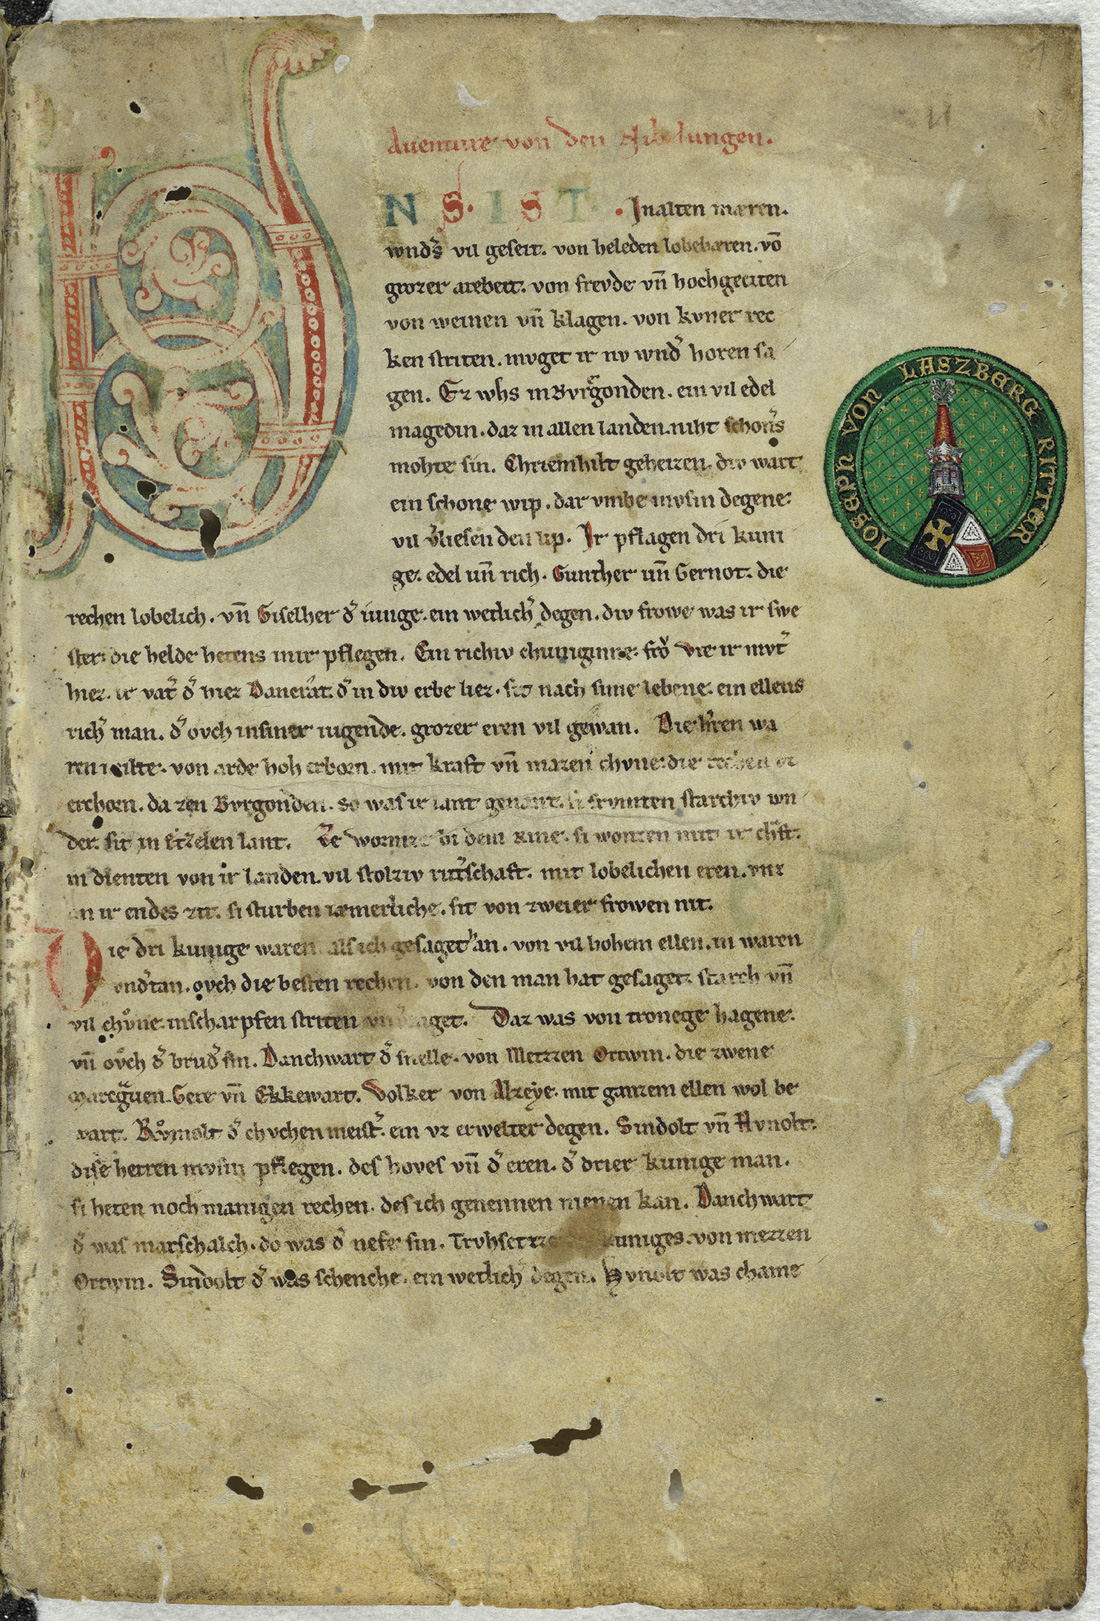 Auenture von den Nibelungen.
VNS. IST. Jn alten mæren.
wnds̄ vil geseit. von heleden lobebæren. vō
grozer arebeit. von frevde vn̄ hochgeciten
von weinen vn̄ klagen. von kvner rec
ken striten. mvget ir nv wnd̄ horen sa
gen. Ez whs in Bvrgonden. ein vil edel
magedin. daz in allen landen. niht schons̄
mohte sin. Chriemhilt geheizen. div wart
ein schone wip. dar vmbe mvsin degene
vil v̄liesen den lip. Ir pflagen dri kuni
ge. edel vn̄ rich. Gunther vn̄ Gernot. die
rechen lobelich. vn̄ Giselher d̄ iunge. ein wetlich̄ degen. div frowe was ir swe
ster. die helde hetens inir pflegen. Ein richiv chuniginne. frŏ Vte ir mvt̄
hiez. ir vat̄ d̄ hiez Dancrat. d̄ in div erbe liez. sit nach sime lebene. ein ellens
rich̄ man. d̄ ovch in siner iugende. grozer eren vil gewan. Die h̄ren wa
ren milte. von arde hoh erborn. mit kraft vn̄ mazen chvne. die rechen vz
erchorn. da zen Bvrgonden. so was ir lant genant. si frvmten starchiv wn
der. sit in Etzelen lant. Ze Wormze bi dem Rine. si wonten mit ir ch̄ft.
in dienten von ir landen. vil stolziv rittr̄schaft. mit lobelichen eren. vnz
an ir endes zit. si sturben iæmerliche. sit von zweier frowen nit.
Die dri kunige waren. als ich gesaget han. von vil hohem ellen. in waren
vnd̄tan. ovch die besten rechen. von den man hat gesaget. starch vn̄
vil chůne. in scharpfen striten vnv̄zaget. Daz was von tronege hagene.
vn̄ ovch d̄ brud̄ sin. Danchwart d̄ snelle. von Metzzen Ortwin. die zwene
marcgͣuen. Gere vn̄ Ekkewart. Volker von Alzeye. mit ganzem ellen wol be
wart. Rvmolt d̄ chvchenmeist̄. ein vz erwelter degen. Sindolt vn̄ Hvnolt.
dise herren mvsin pflegen. des hoves vn̄ d̄ eren. d̄ drier kunige man.
si heten noch manigen rechen. des ich genennen nienen kan. Danchwart
d̄ was marschalch. do was d̄ nefe sin. Trvhsetze kuniges. von mezzen
Ortwin. Sindolt d̄ was schenche. ein wetlich̄ degen. Hvnolt was chame
IOSEPH VON LASZBERG RITTER